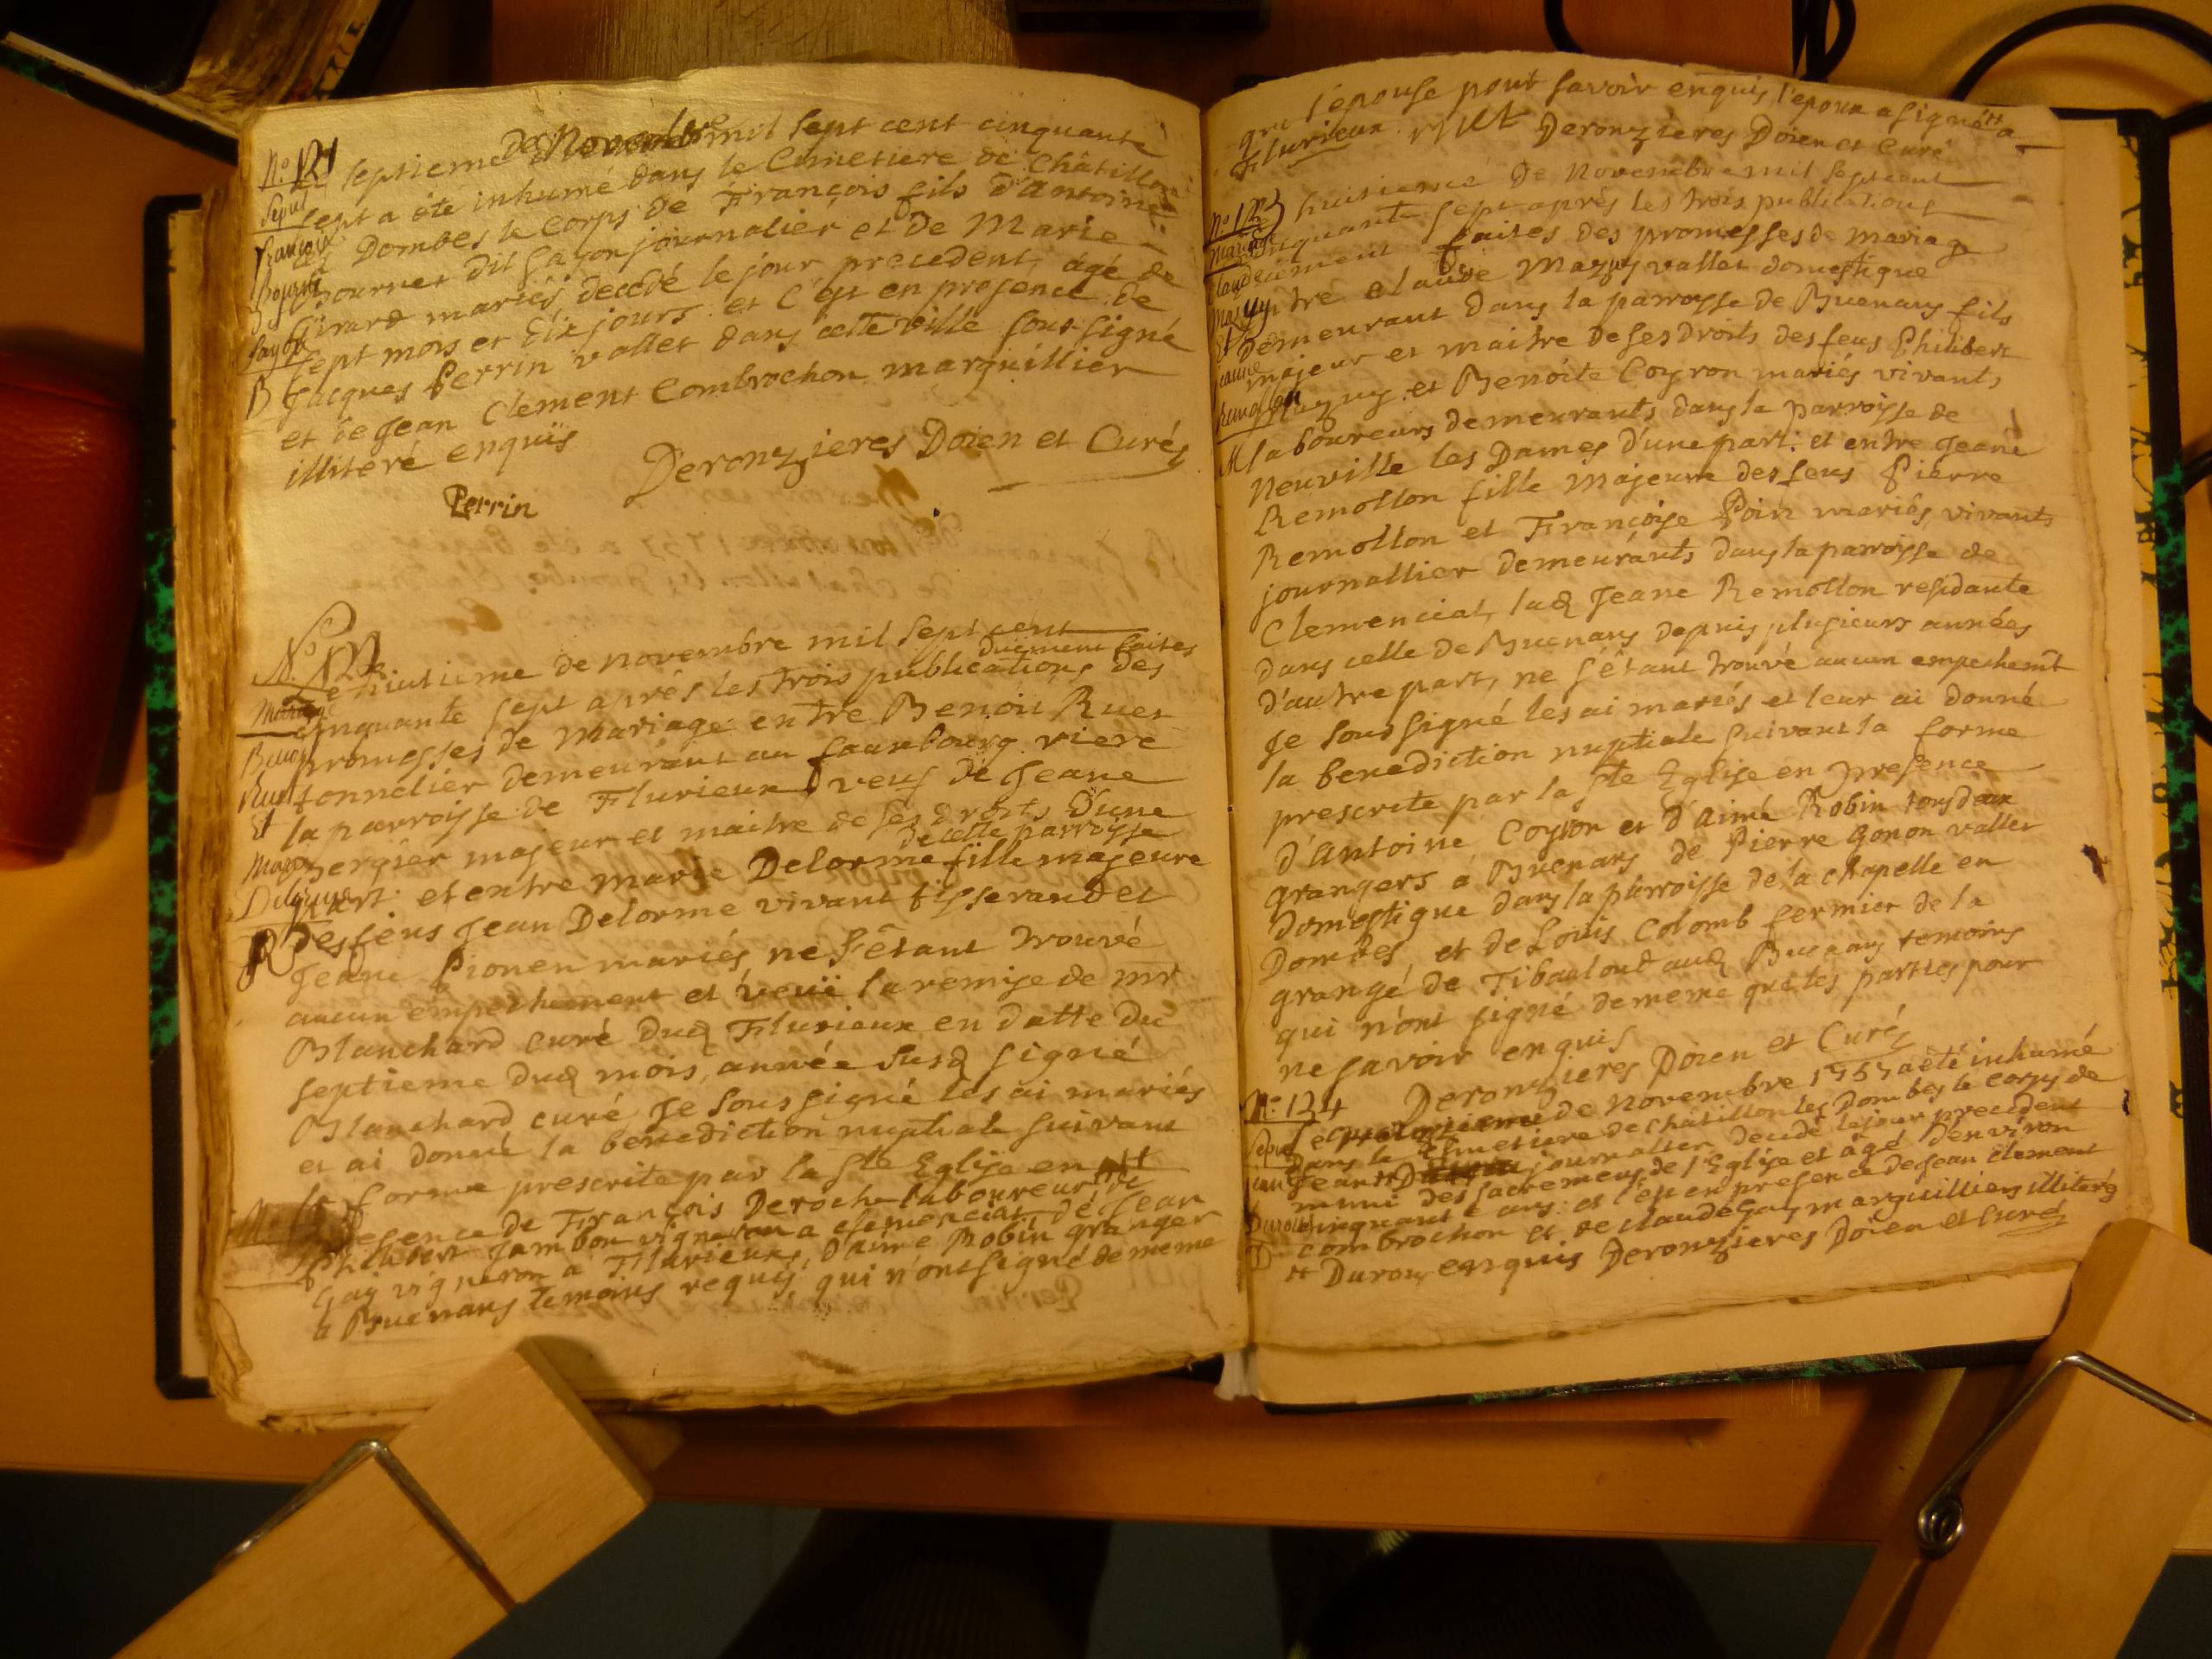 N.° 121
Sepul
françois
Bournet
dit
fayon
B
Le septieme De Novembre mil sept cent cinquante
sept a été inhumé dans le Cimetiere de Châtillon
les Dombes le Corps de François fils d'antoine
Bournet dit fayon journalier et de Marie
Girard mariés, decedé le jour precedent, agé de
sept mois et dix jours et c'est en presence de
Jacques Perrin vallet dans cette ville soussigné
et de Jean Clement Combrochon marguillier
illiteré enquis
Deronzieres Doien et Curé
Perrin
N.° 122
Mariage
Benoit
Ruet
Et
Marie
Delorme
R
Le huitieme de novembre mil sept cent
duement faites
cinquante sept après les trois publications des
promesses de Mariage entre Benoit Ruet
tonnelier demeurant au fauxbourg
la parroisse de Flurieux veuf de Jeane
Bergier majeur et maitre de ses droits D'une
de cette parroisse
part. et entre marie Delorme fille majeure
Desfeus Jean Delorme vivant tisserand et
Jeane Pionen mariés, ne s'êtant trouvé
aucun empechement et veüe la remise de mr
Blanchard curé dud Flurieux en datte du
septieme dud mois, année susd signé
Blanchard curé, Je soussigné les ai mariés
et ai donné la benediction nuptiale suivant
la forme prescrite par la Ste Eglise en
presence de François Deroche laboureur
Philibert Jambon vigneron a clemenciat, de Jean
Gay vigneron a Flurieux, d'aimé Robin granger
a Buenans temoins requis, qui n'ont signé de meme
que l'epouse pour savoir enquis, l'epoux a signé
Flurieux Ruet Deronzieres Doien et Curé
N.° 123
Mariage
Claude
Maguy
Et
jeanne
Remollon
M
Le huitieme De Novembre mil sept cent
cinquante sept après les trois publications
duement faites des promesses de mariage
entre claude Maguy vallet domestique
demeurant dans la parroisse de Buenans fils
majeur et maitre de ses droits des feus Philibert
Maguy et Benoite Coyron mariés vivants
laboureurs demeurants dans la parroisse de
Neuville les Dames d'une part. et entre Jeane
Remollon fille majeure des feus Pierre
Remollon et Françoise Poin mariés, vivants
journallier demeurants dans la parroisse de
Clemenciat, lad Jeane Remollon residante
dans celle de Buenans depuis plusieurs années
d'autre part, ne s'êtant trouvé aucun empechemt
Je soussigné les ai mariés et leur ai donné
la benediction nuptiale suivant la forme
prescrite par la Ste Eglise en presence
d'Antoine Coyron et d'aimé Robin tous deux
grangers a Buenans de Pierre Gonon vallet
Domestique dans la parroisse de la chapelle en
Dombes, et de Louis Colomb fermier de la
grange de Tibauloud aud Buenans temoins
qui n'ont signé de meme que les parties pour
ne savoir enquis
Deronzieres Doien et Curé
N.° 124
Sepul
jean
Durou
D
Le de novembre 1757 a été inhumé
dans le Cimetiere de Châtillon les Dombes le corps de
Jean journalier decedé le jour precedent
muni des sacremens de l'Eglise et agé d'environ
cinquante ans. et c'est en presence de Jean clement
combrochon et de claude Gay marguilliers illiterés
Durou enquis Deronzieres Doien et Curé